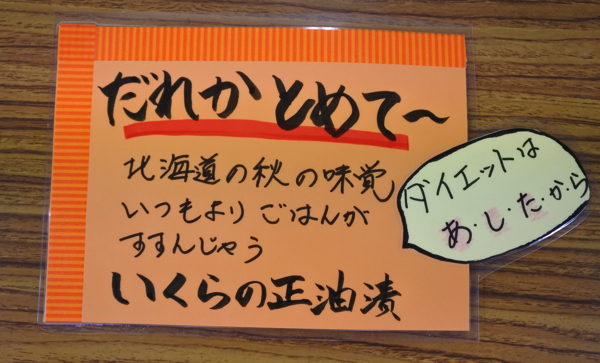 だれかとめて〜
北海道の秋の味覚
いつもより ごはんが
すすんじゃう
いくらの正油漬
ダイエットは
あ・し・た・か・ら